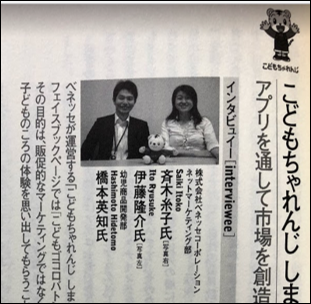 こどもちゃれんじ
こどもちゃれんじ しま
アプリを通して市場を創造
インタビュイー[interviewee]
株式会社ベネッセコーポレーション
ネットマーケティング部
Saiki Itoko
斉木糸子氏[写真右]
Ito Ryusuke
伊藤隆介氏[写真左]
幼児商品開発部
Hashimoto Hidetomo
橋本英知氏
ベネッセが運営する「こどもちゃれんじ しま
フェイスブックページでは「こどもココロバト
その目的は、販促的なマーケティングではな
子どものころの体験を思い出してもらうこ